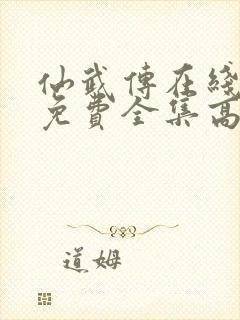 仙武傳在綫
免費全集高
道姆